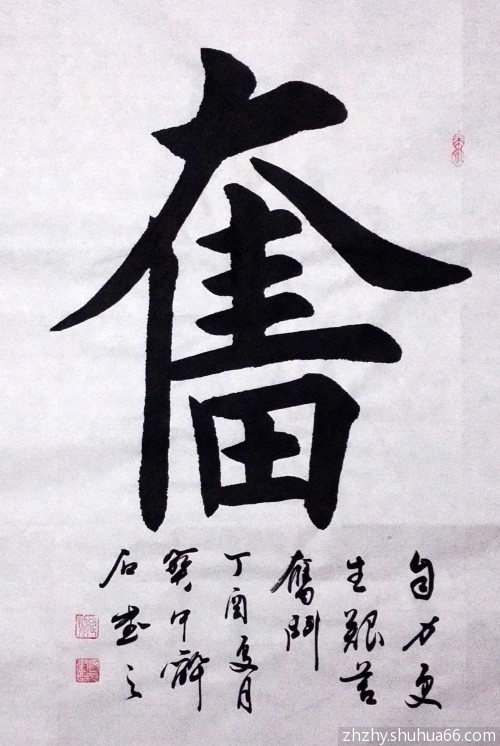 奮
自力更
生艰苦
奮鬥
丁酉夏月
石
zhzhy.shuhua66.com